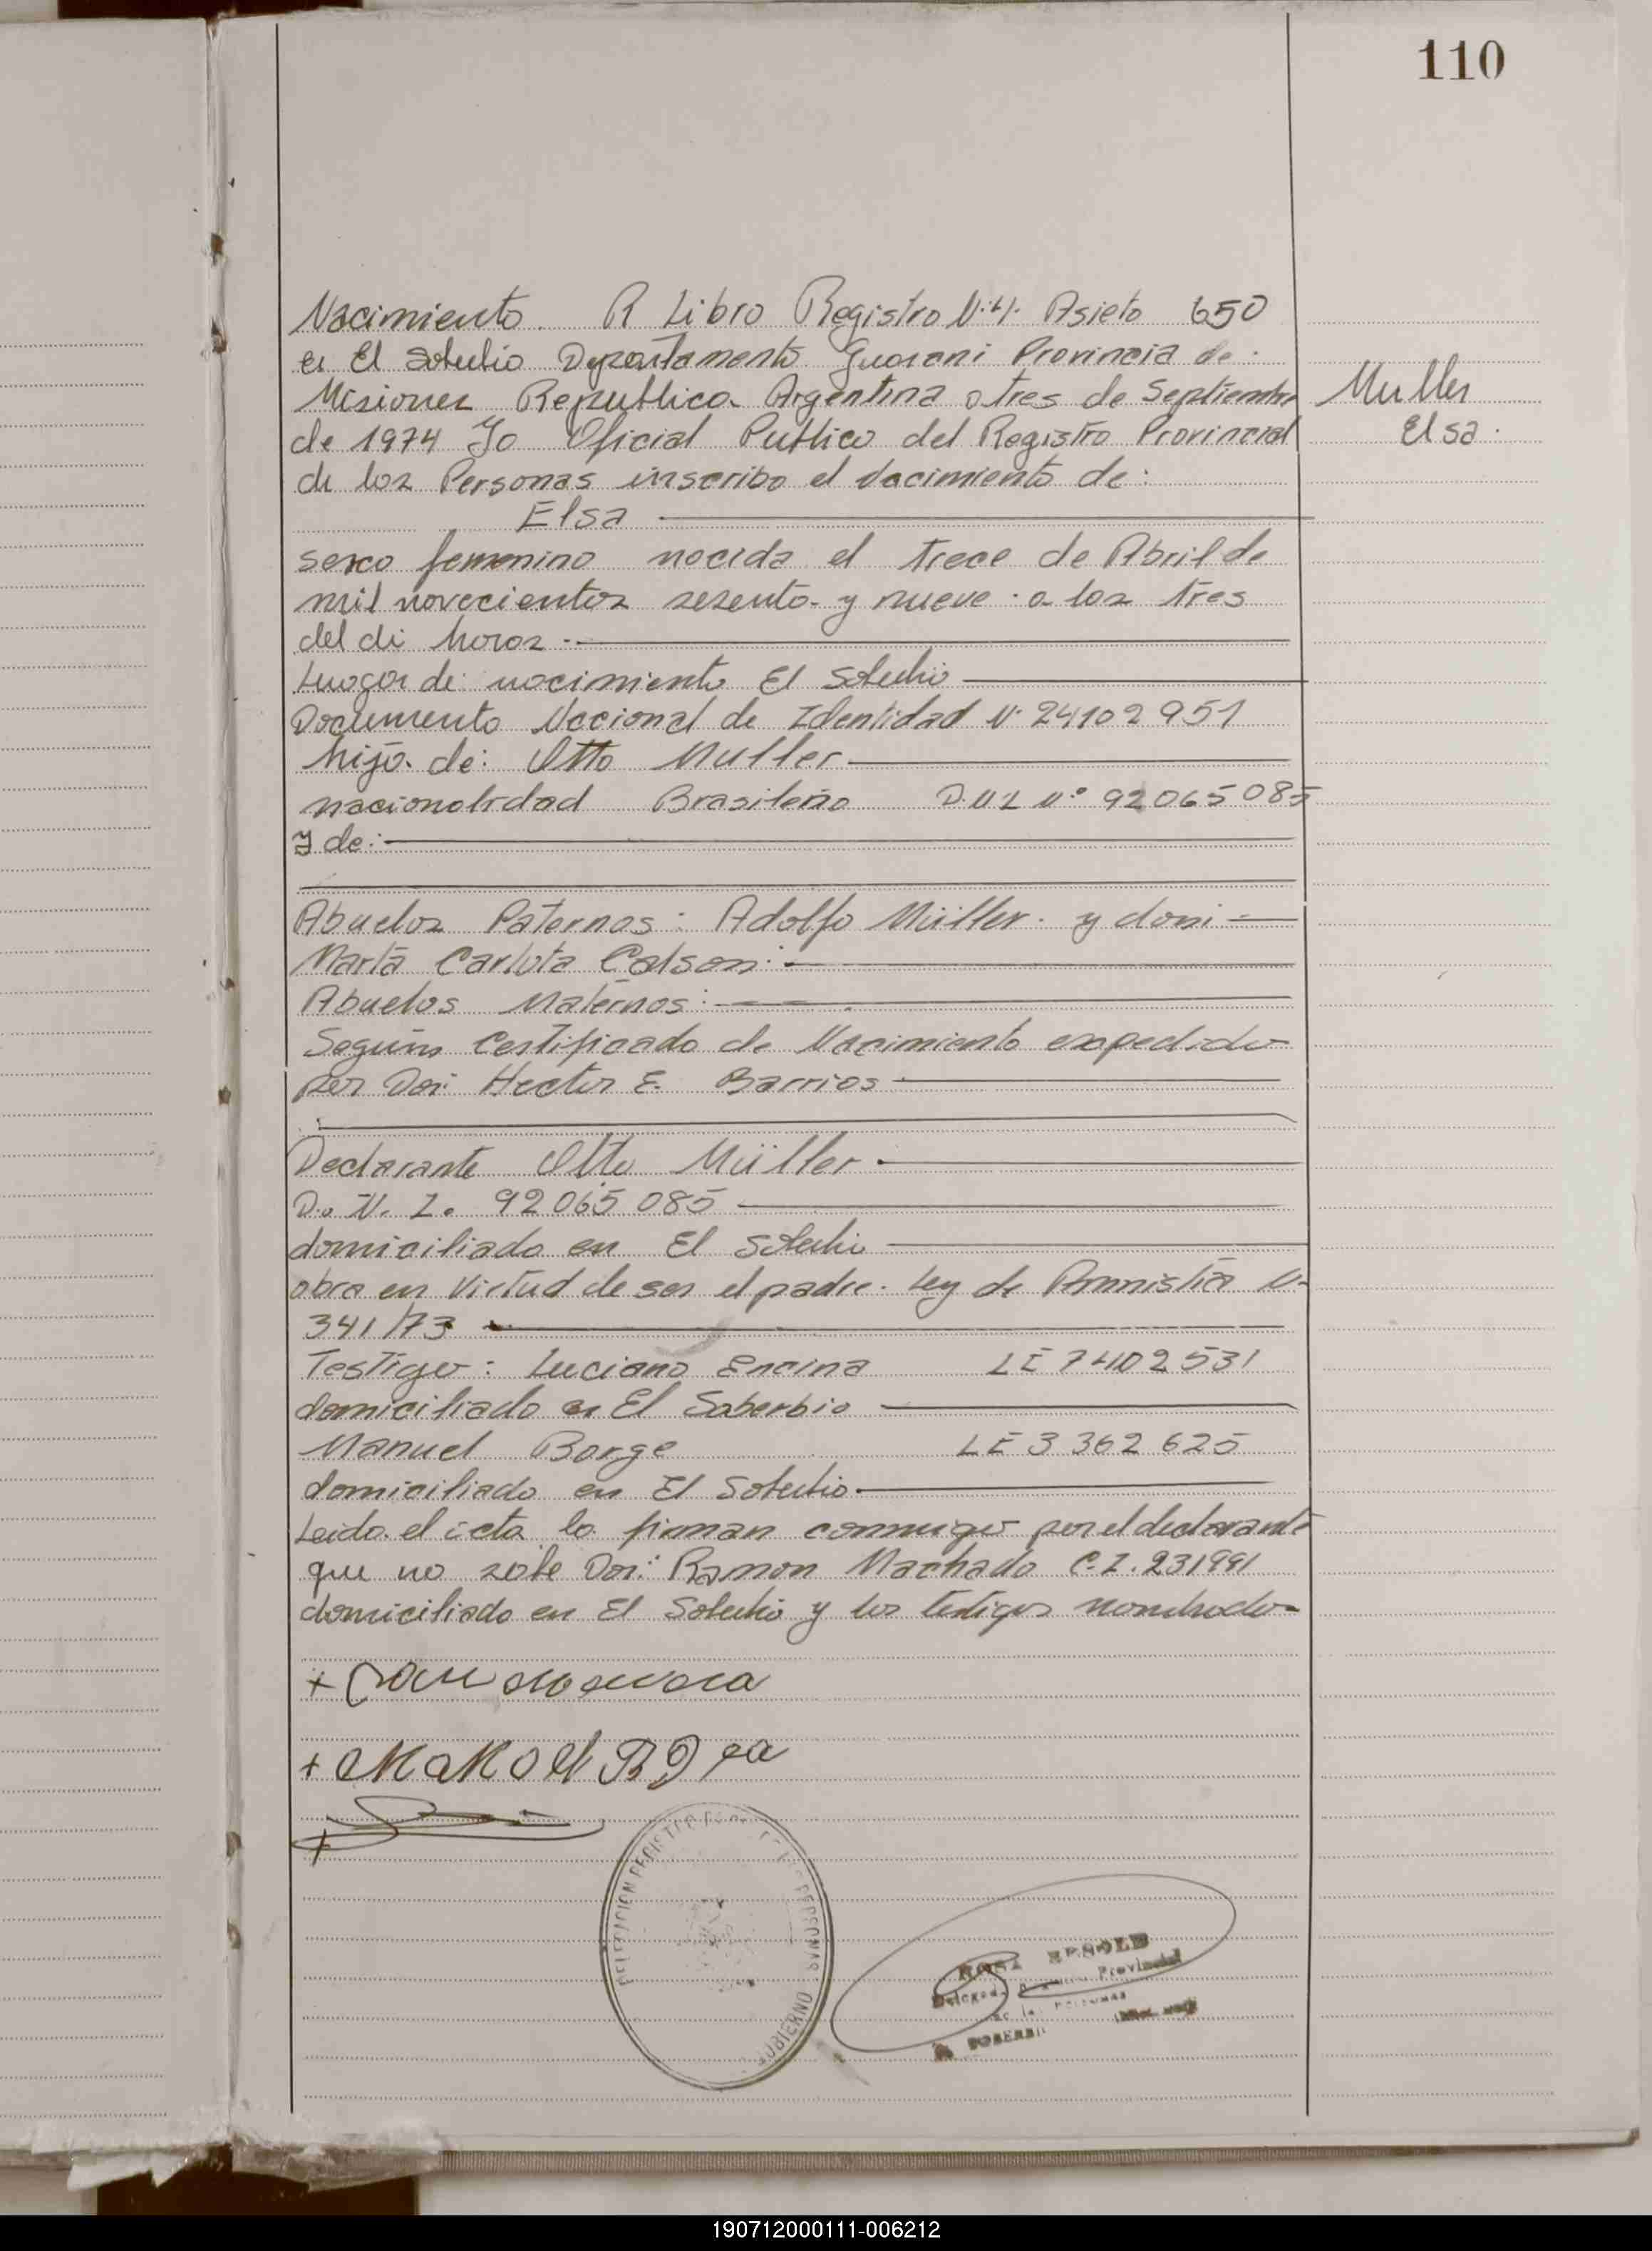 110
Nacimiento. R Libro Registro N: 4. Asieto 650
en El Soberbio Departamento Guarani Provincia de
Misiones Republica Argentina a tres de Septiembre
de 1974 Yo Oficial Publico del Registro Provincial
de las Personas inscribo el Nacimiento de:
Elsa
Muller
Elsa.
sexo femenino nacida el trece de Abril de
mil novecientos sesenta y nueve a las tres
del di horas
Lugar de nacimiento El Soberbio
Documento Nacional de Identidad N. 24102951
hija de: Otto Muller
nacionalidad Brasileño D.N.I. Nº 92065085
y de:
Abuelos Paternos: Adolfo Müller. y doni
Marta Carlota Colson
Abuelos Maternos:
Segun Certificado de Nacimiento expedido
por Don: Hector E. Barrios
Declarante Otto Müller
D. N. I. 92065085
domiciliado en El Soberbio
obra en Virtud de ser el padre. Ley de Amnistia N.
341/73
Testigo: Luciano Encina LE 7402531
domiciliado en El Soberbio
Manuel Borge LE 3362625
domiciliado en El Soberbio
Leida el acta la firman conmigo por el declarante
que no sabe Don: Ramon Machado C.I. 231991
domiciliado en El Soberbio y los testigos nombrados
DELEGACION REGISTRO PERSONAS
GOBIERNO
Provincial
190712000111-006212